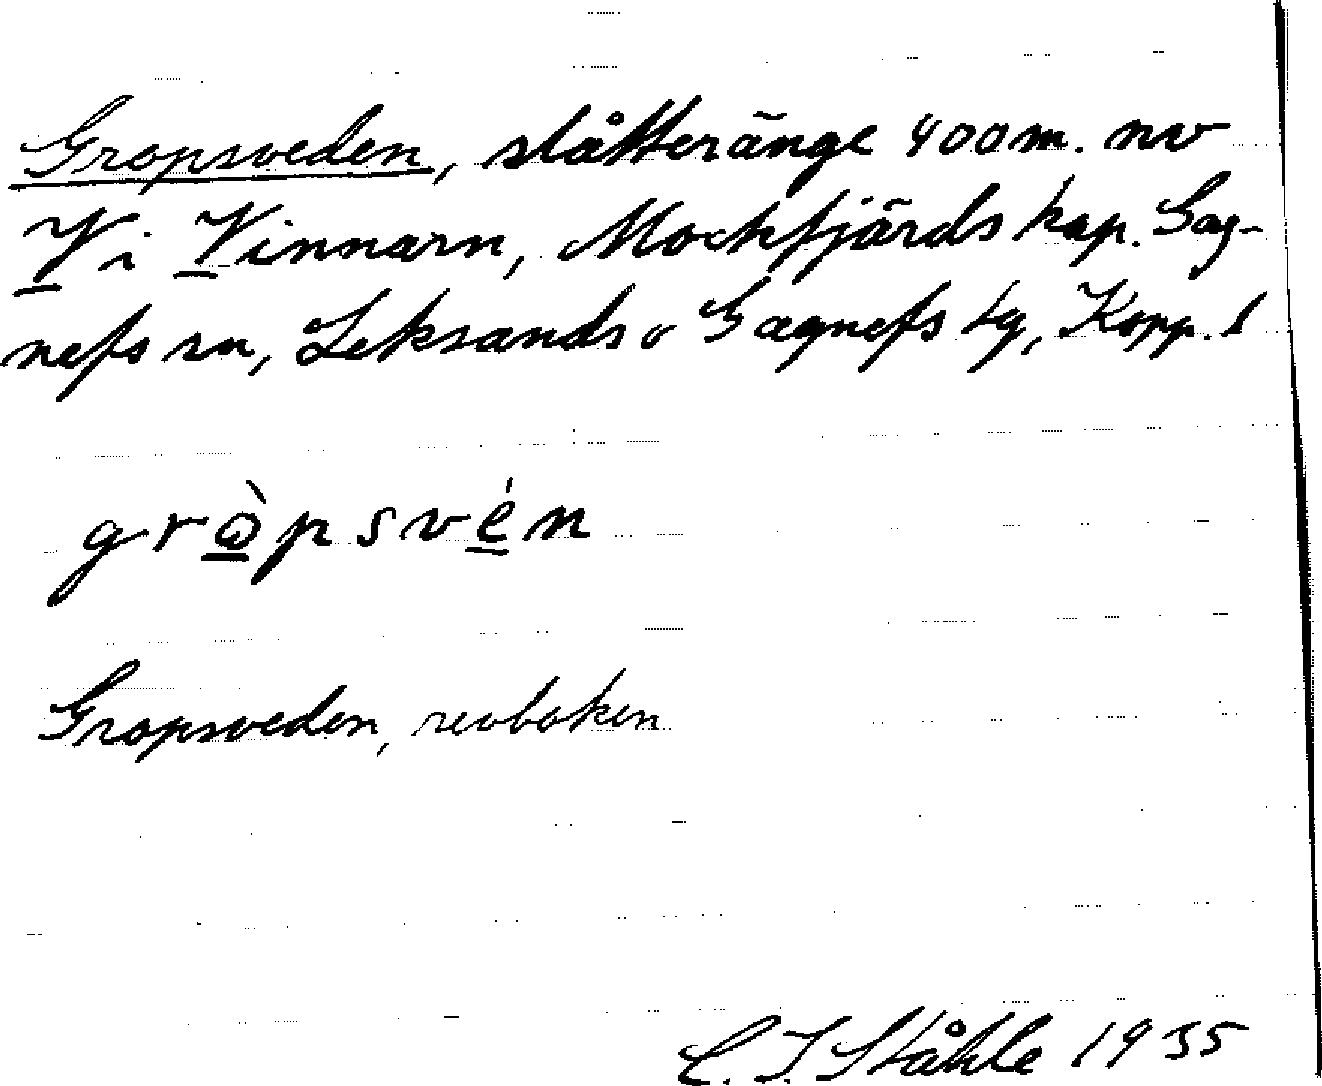 Gropsveden, slåtteränge 400 m. nv
V i Vinnarn, Mockfjärds kap. Gag-
nefs sn, Leksands o Gagnefs tg, Kopp. l
gròpsvén
Gropsveden, revboken
C. I. Ståhle 1935